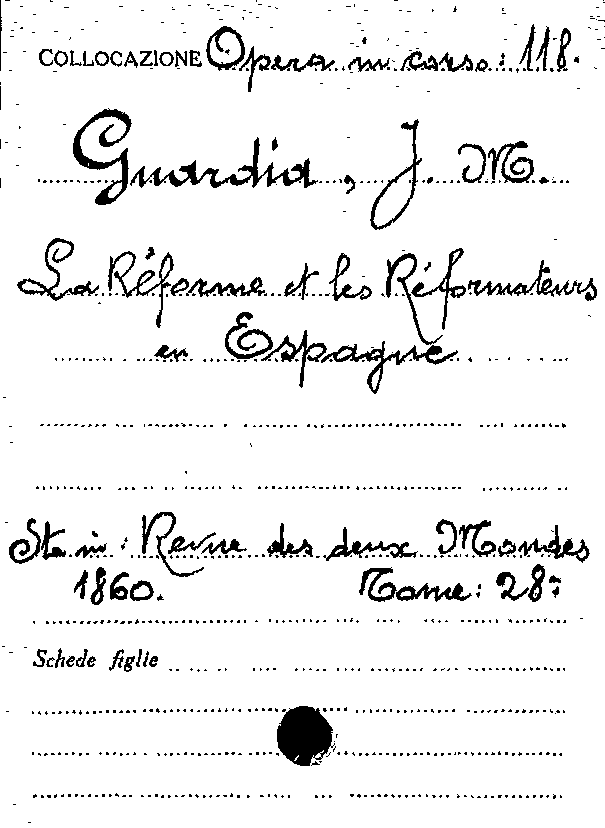 COLLOCAZIONE Opera in corso: 118.
Guardia, J. M.
La Réforme et les Réformateurs
en Espagne.
Sta in: Revue des deux Mondes
1860. Tome: 28:
Schede figlie